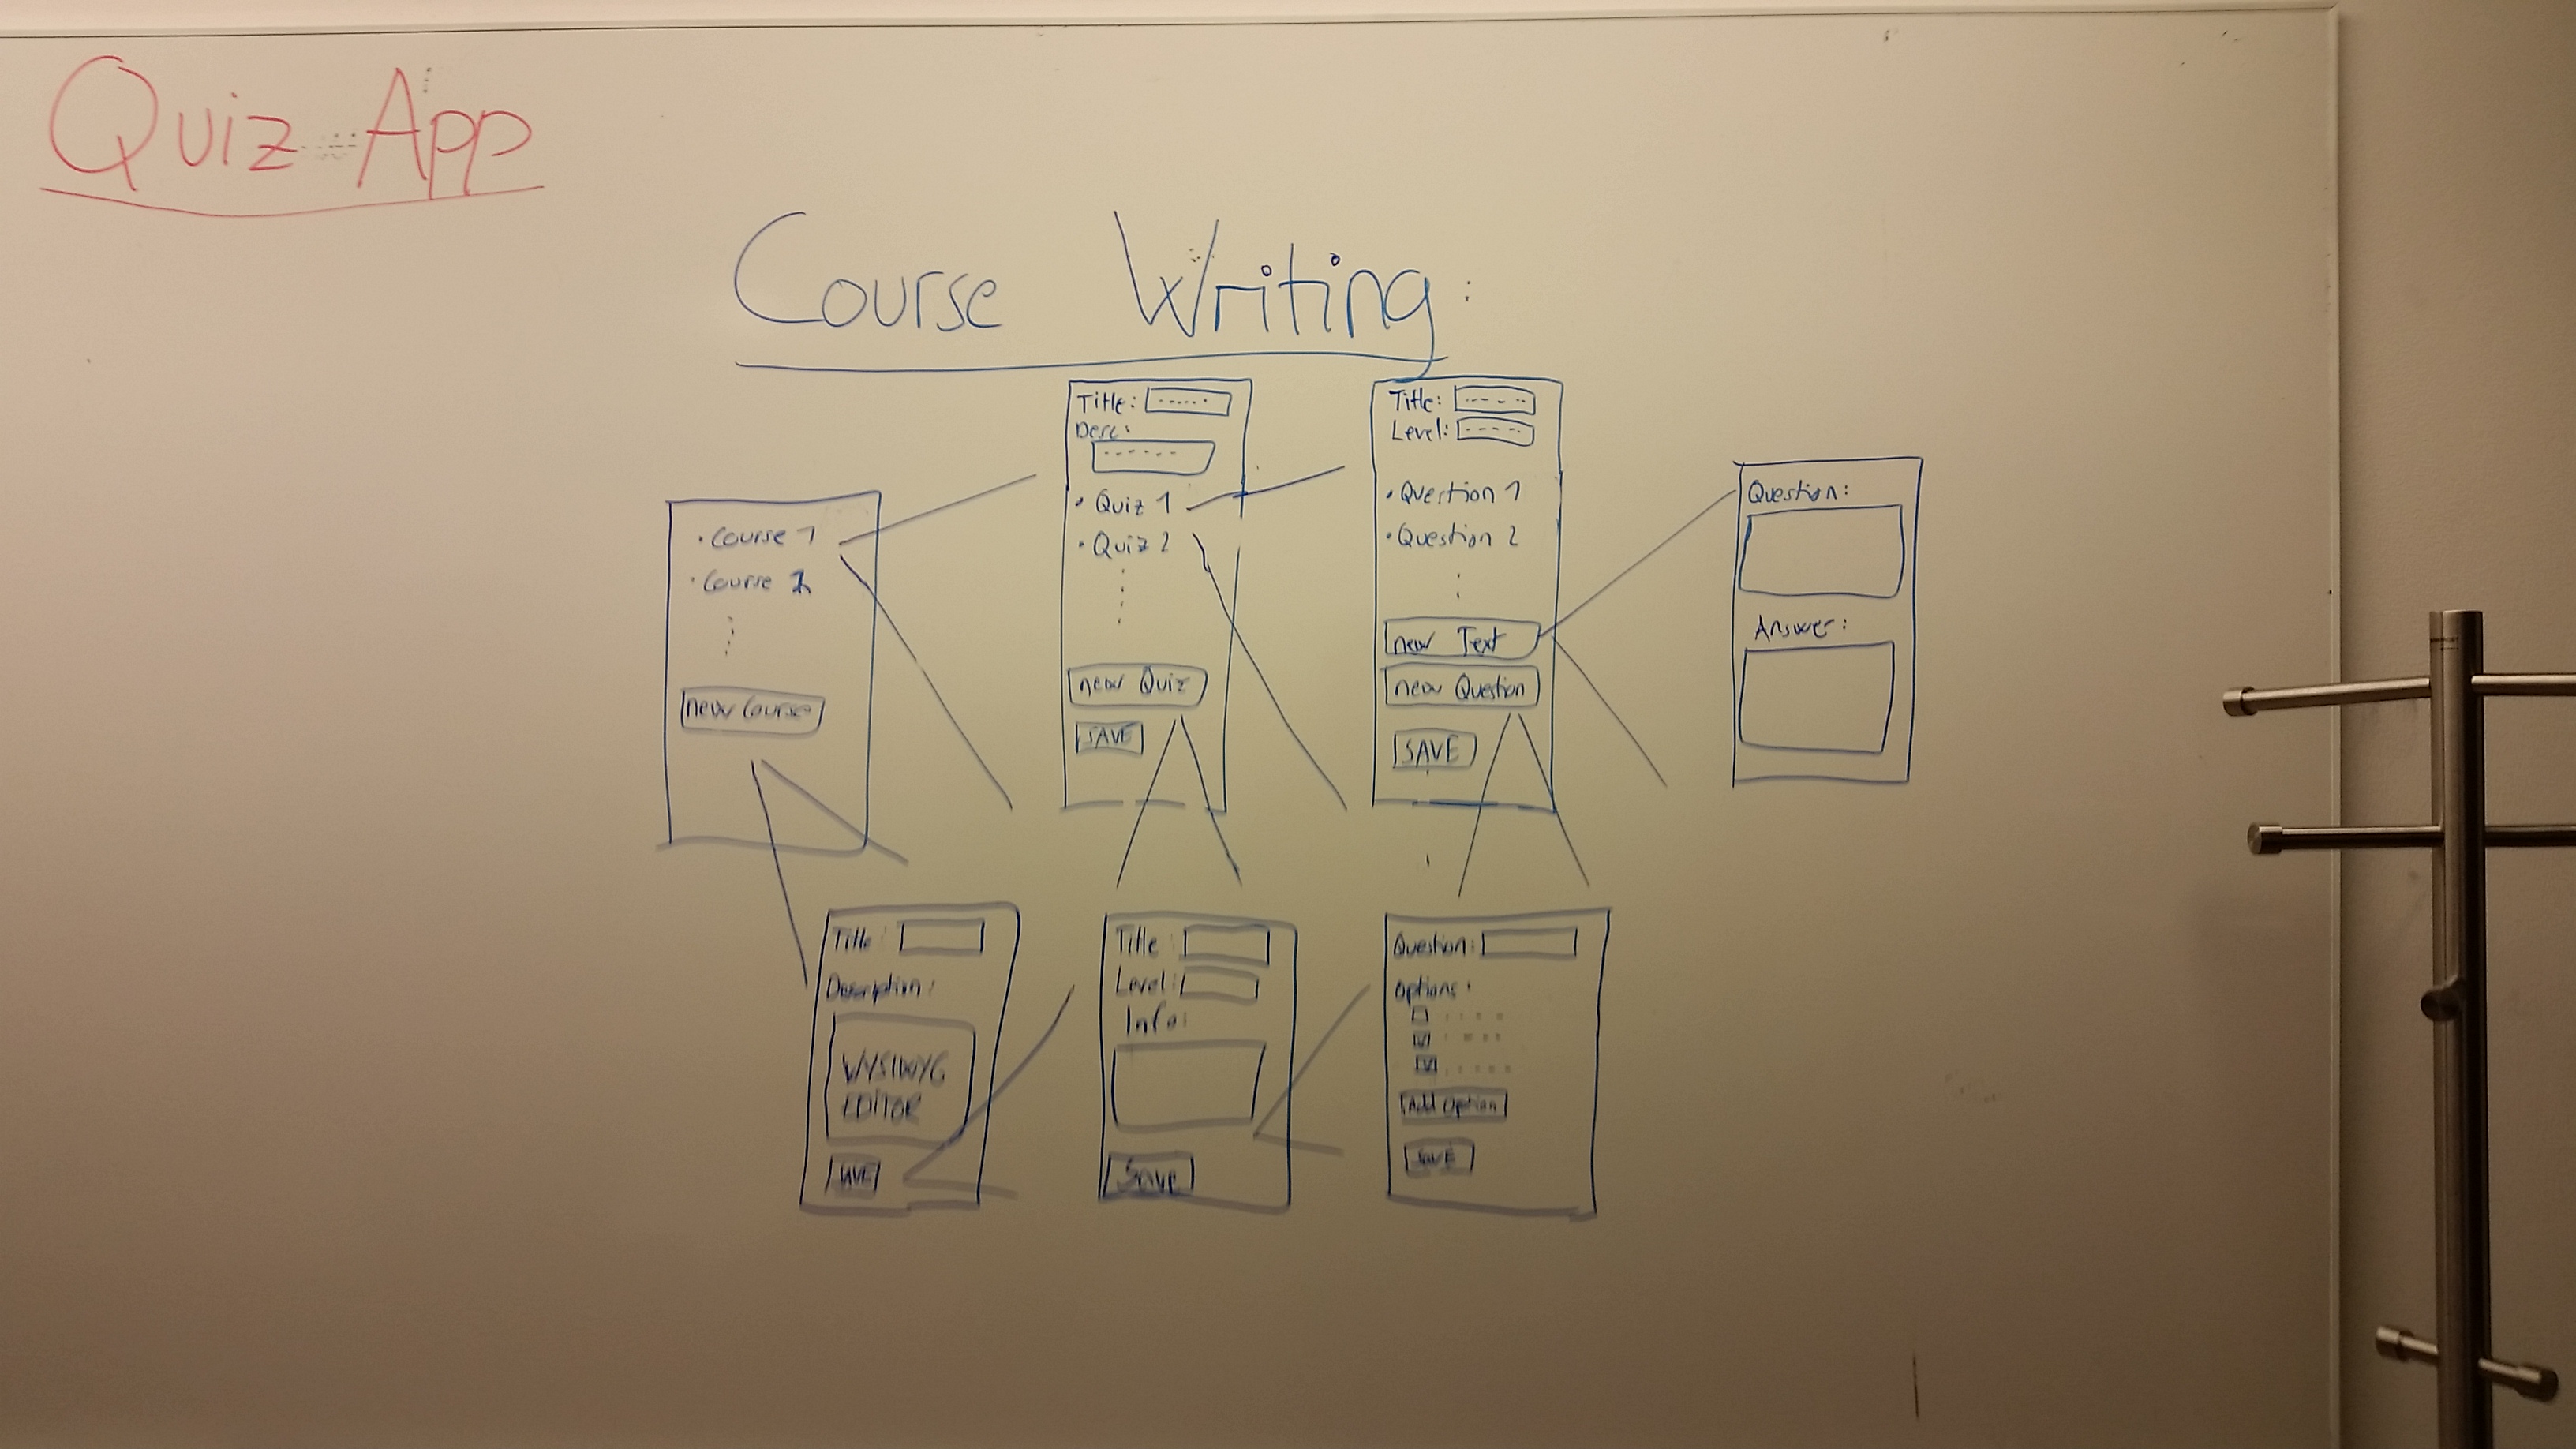 Quiz App
Course Writing:
• Course 1
• Course 2
new Course
Title:
Desc:
• Quiz 1
• Quiz 2
new Quiz
SAVE
Title:
Level:
• Question 1
• Question 2
new Text
new Question
SAVE
Question:
Answer:
Title:
Description:
WYSIWYG
EDITOR
SAVE
Title
Level:
Info:
Save
Question:
Options:
Add Option
SAVE